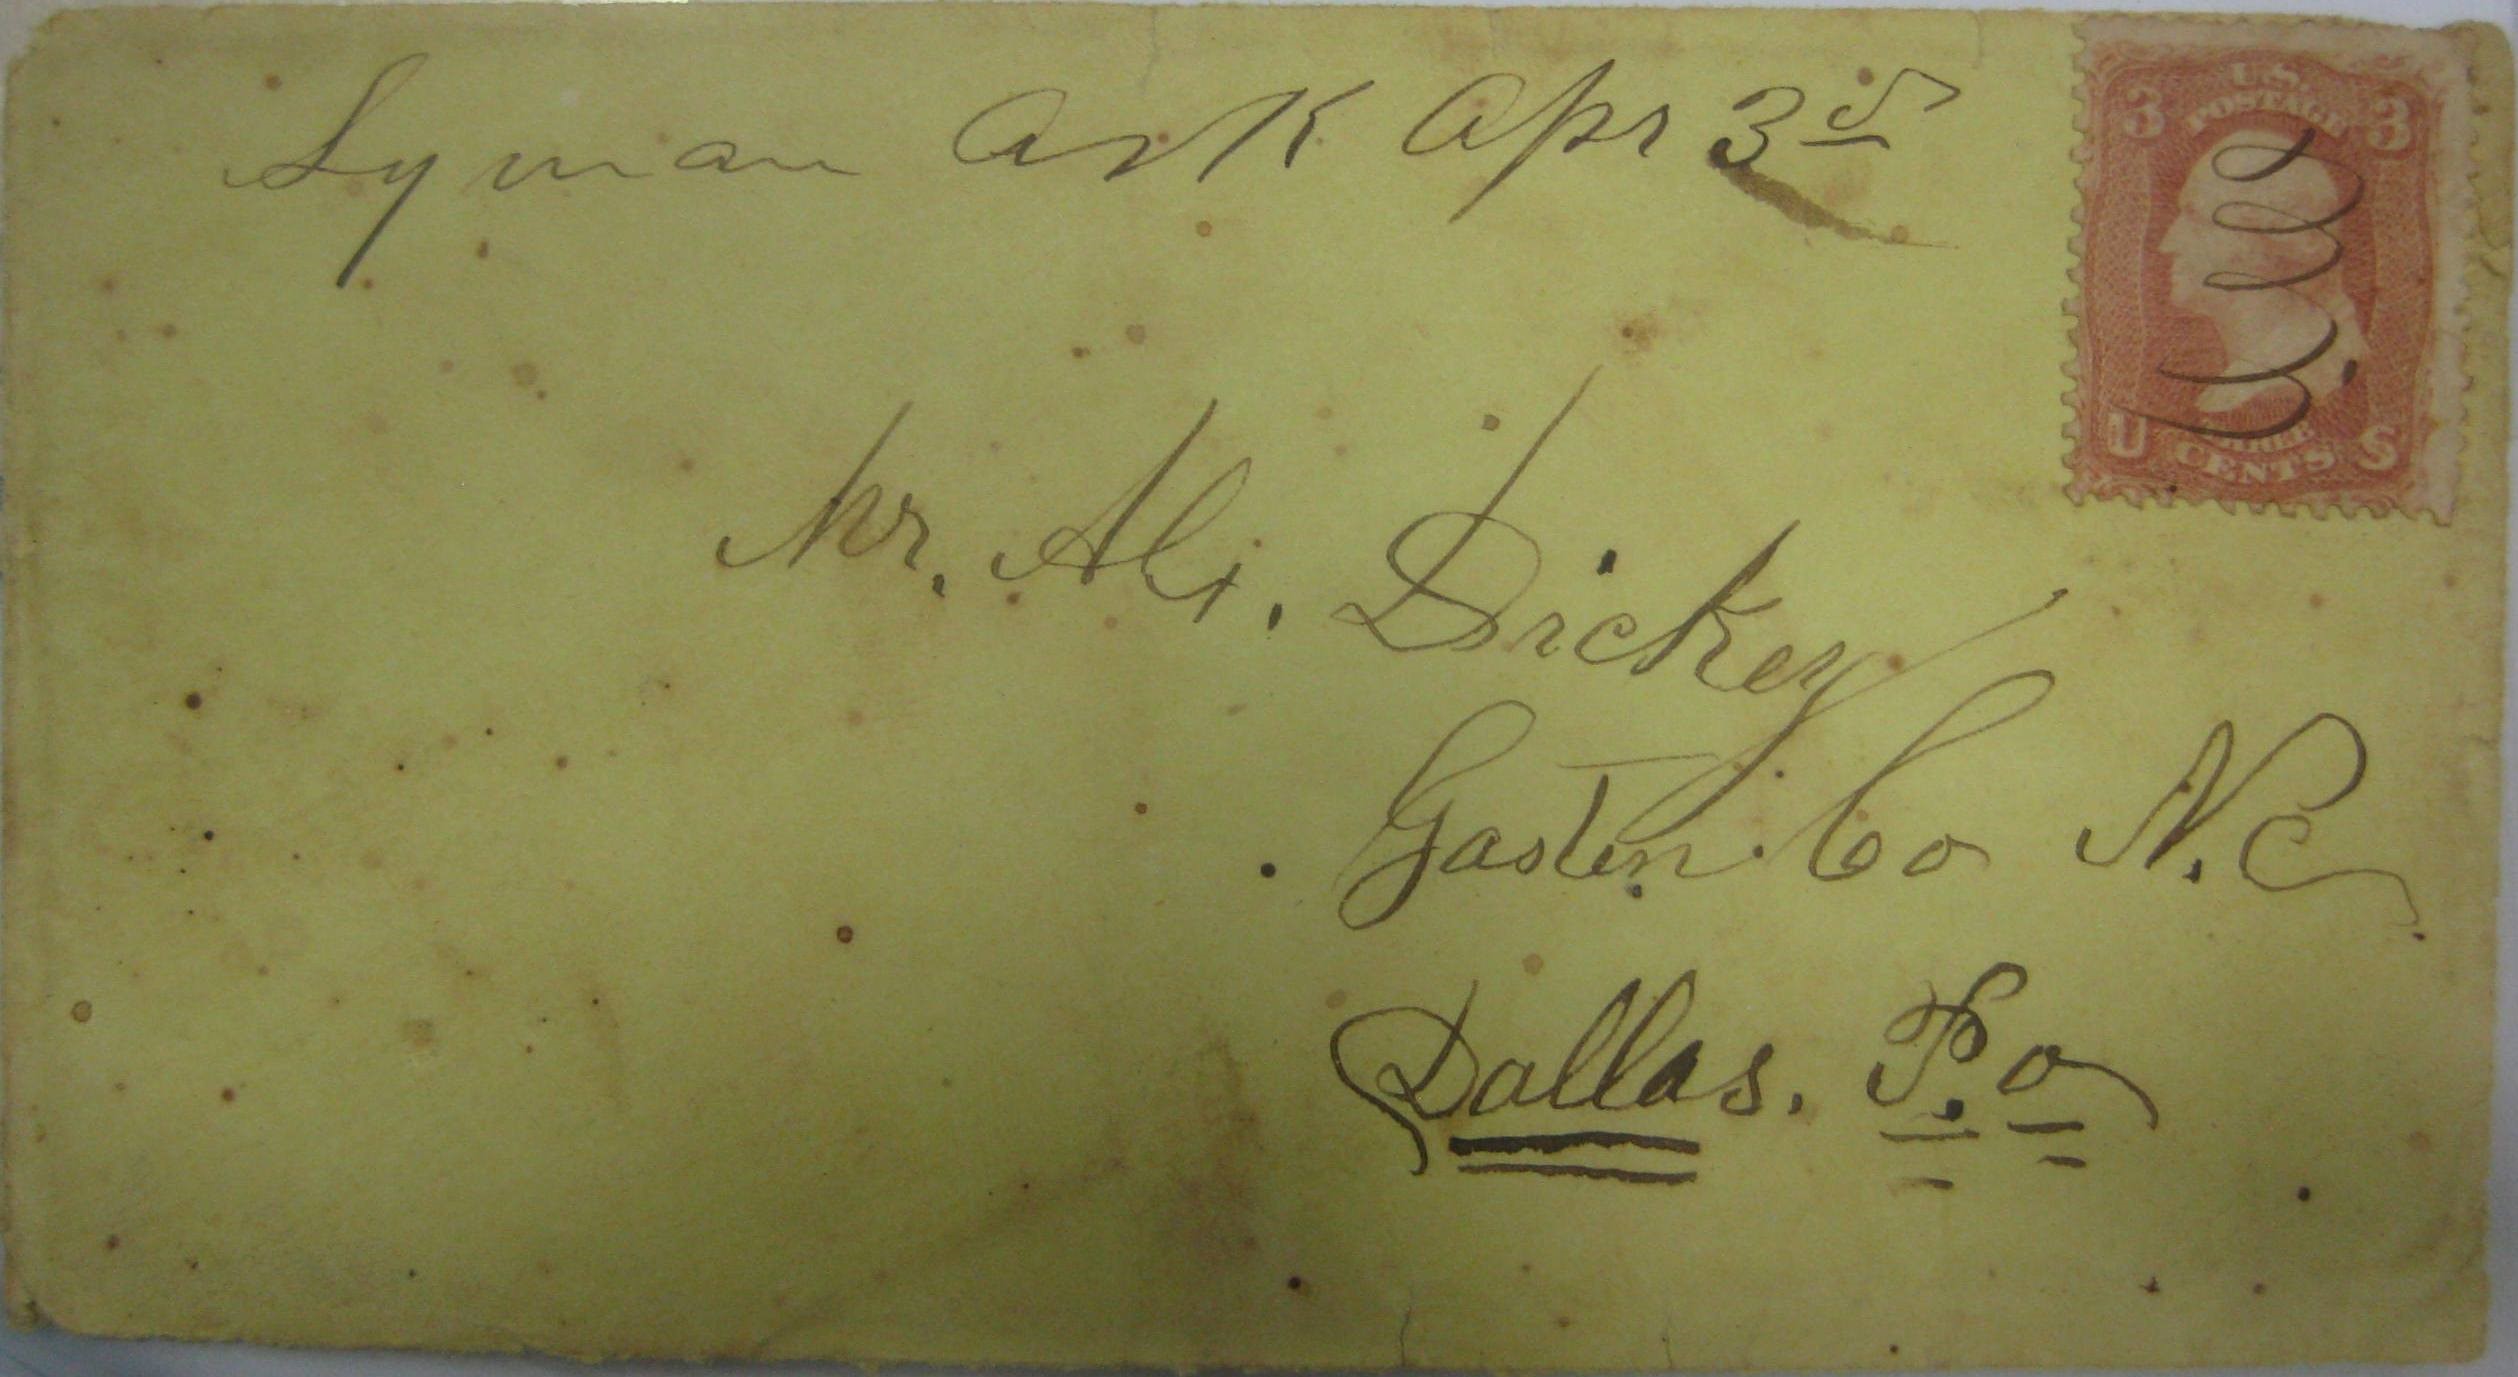 Lyman Ark Apr 3d
U.S.
POSTAGE
3 3
U THREE S
CENTS
Mr. Alx. Dickey
Gaston Co N.C.
Dallas. P.o